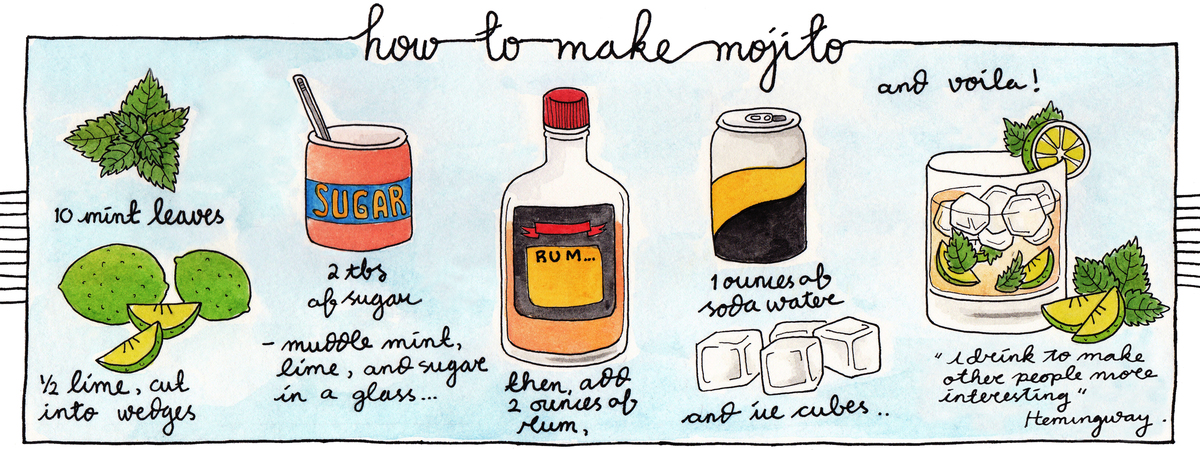 how to make mojito
10 mint leaves
1/2 lime, cut
into wedges
SUGAR
2 tbs
of sugar
- muddle mint,
lime, and sugar
in a glass...
RUM...
then, add
2 ounces of
rum,
1 ounces of
soda water
and ice cubes..
and voila!
"i drink to make
other people more
interesting"
Hemingway.